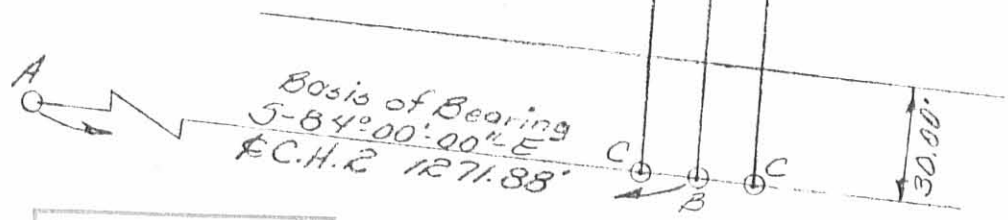 A
Basis of Bearing
S-84°00'00"-E
℄ C.H.2 1271.88'
C
B
C
30.00'